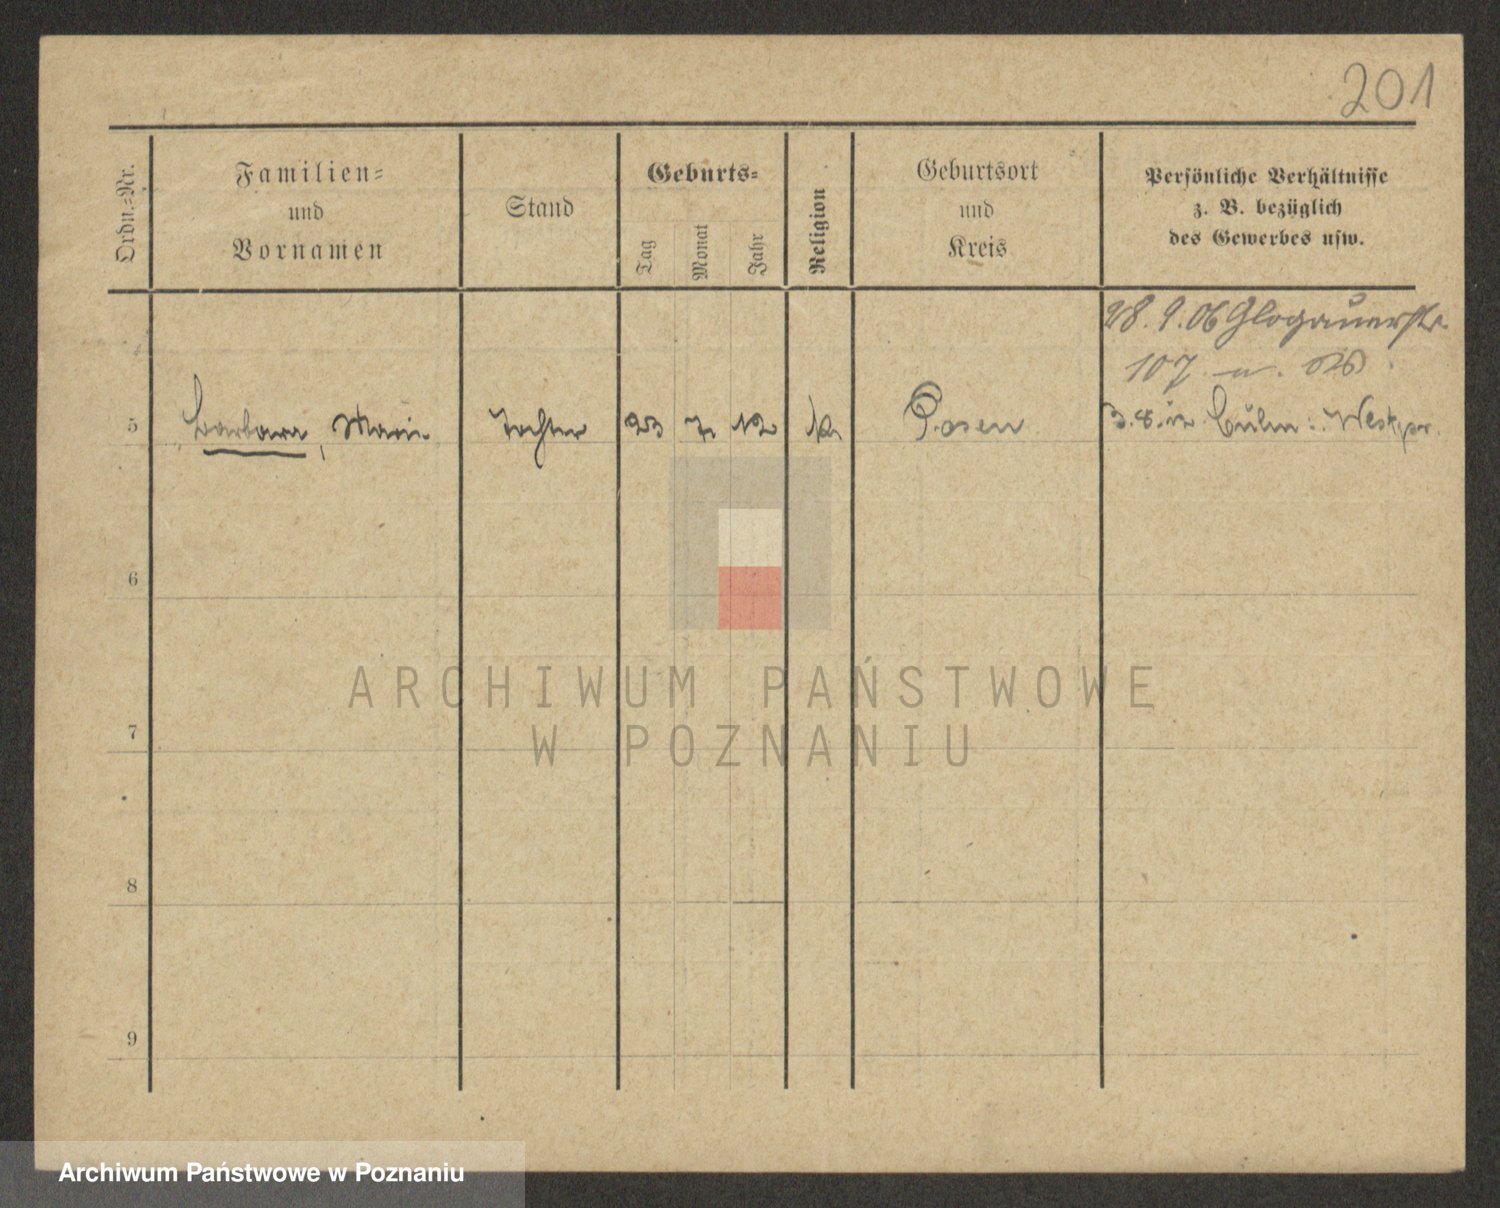 201
Ordn.-Nr.
Familien-
und
Vornamen
Stand
Geburts-
Tag
Monat
Jahr
Religion
Geburtsort
und
Kreis
Persönliche Verhältnisse
z. B. bezüglich
des Gewerbes usw.
28. 9. 06 Glogauerstr.
107
5 Barbara, Marie Tochter 23 7. 12 k. Posen 3. 8. in Culm: Westpr.
6
7
8
9
ARCHIWUM PAŃSTWOWE
W POZNANIU
Archiwum Państwowe w Poznaniu